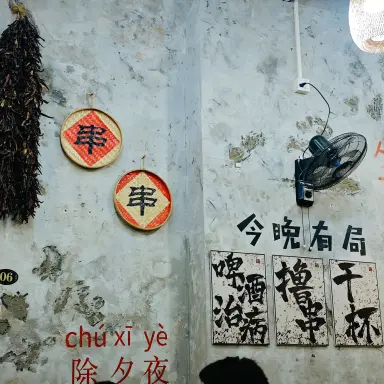 串
串
06
chú xī yè
除夕夜
今晚有局
啤酒治病
撸串
干杯